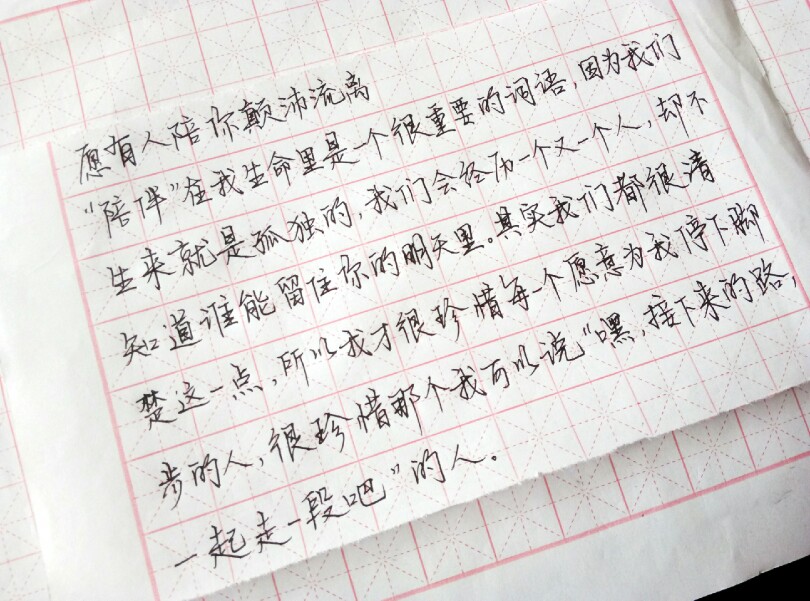 愿有人陪你颠沛流离
“陪伴”在我生命里是一个很重要的词语，因为我们
生来就是孤独的，我们会经历一个又一个人，却不
知道谁能留住你的明天里。其实我们都很清
楚这一点，所以我才很珍惜每一个愿意为我停下脚
步的人，很珍惜那个我可以说“嘿，接下来的路，
一起走一段吧”的人。